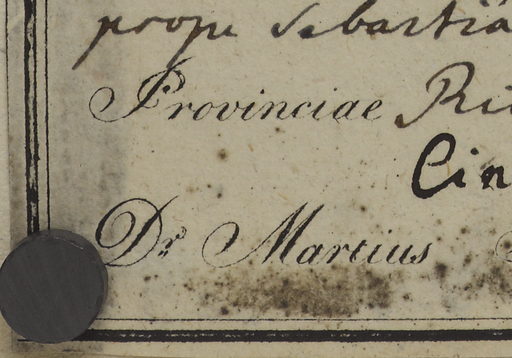 prope Sebastia
Provinciae Ri
Cin
Dr Martius